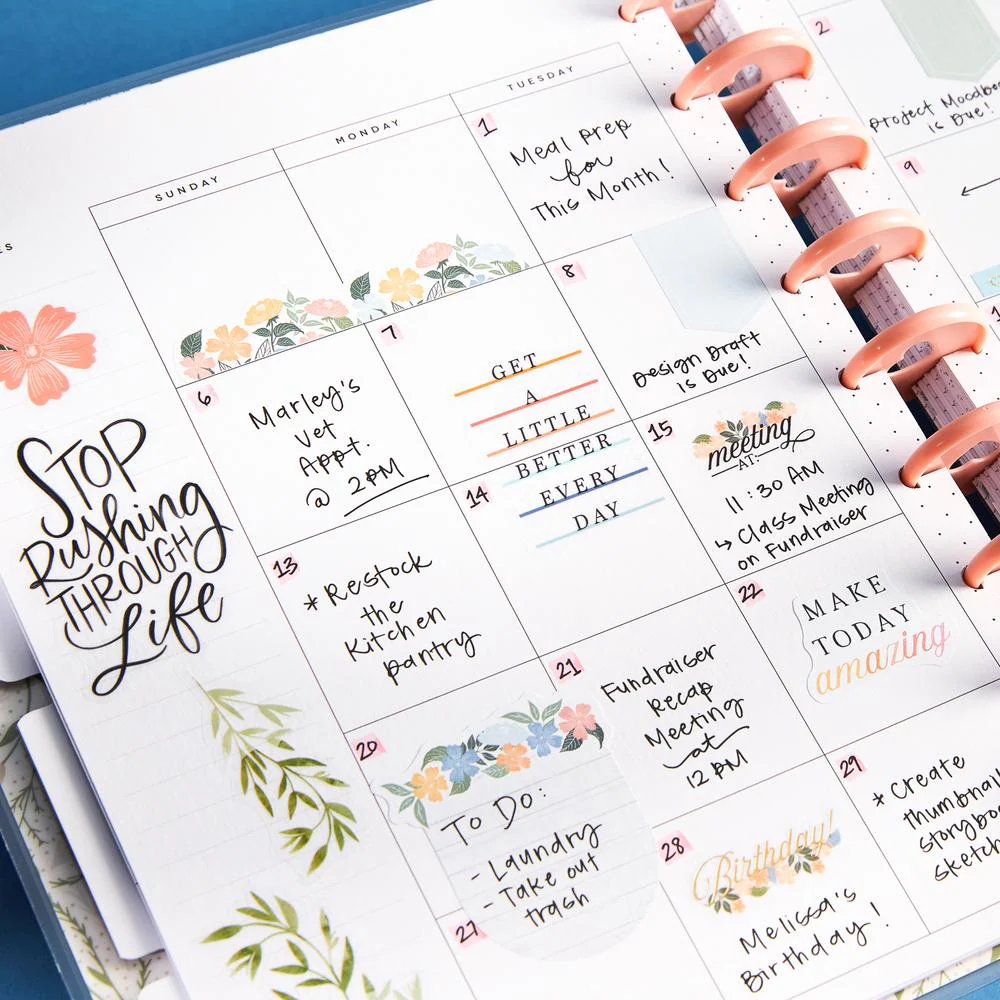 ES
SUNDAY
MONDAY
TUESDAY
1
Meal prep
for
This Month!
2
Project Moodboa
is Due!
6
Marley's
Vet
Appt.
@ 2PM
7
GET
A
LITTLE
BETTER
EVERY
DAY
8
Design Draft
is Due!
9
STOP
Rushing
THROUGH
Life
13
* Restock
the
Kitchen
pantry
14
15
meeting
AT:
11:30 AM
↳ Class Meeting
on Fundraiser
1
20
To Do:
- Laundry
- Take out
trash
21
Fundraiser
Recap
Meeting
at
12 PM
22
MAKE
TODAY
amazing
27
28
Birthday!
Melissa's
Birthday!
29
* Create
thumbnail
storyboa
sketch